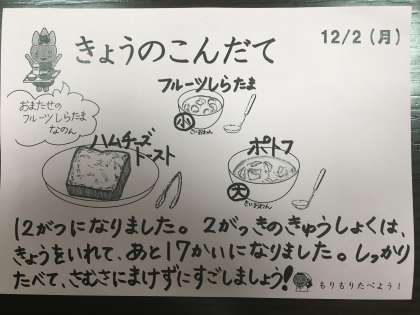 きょうのこんだて
12/2(月)
おまたせの
フルーツしらたま
なのん
フルーツしらたま
小
ハムチーズ
トースト
ポトフ
大
12がつになりました。2がっきのきゅうしょくは、
きょうをいれて、あと17かいになりました。しっかり
たべて、さむさにまけずにすごしましょう!
もりもりたべよう!